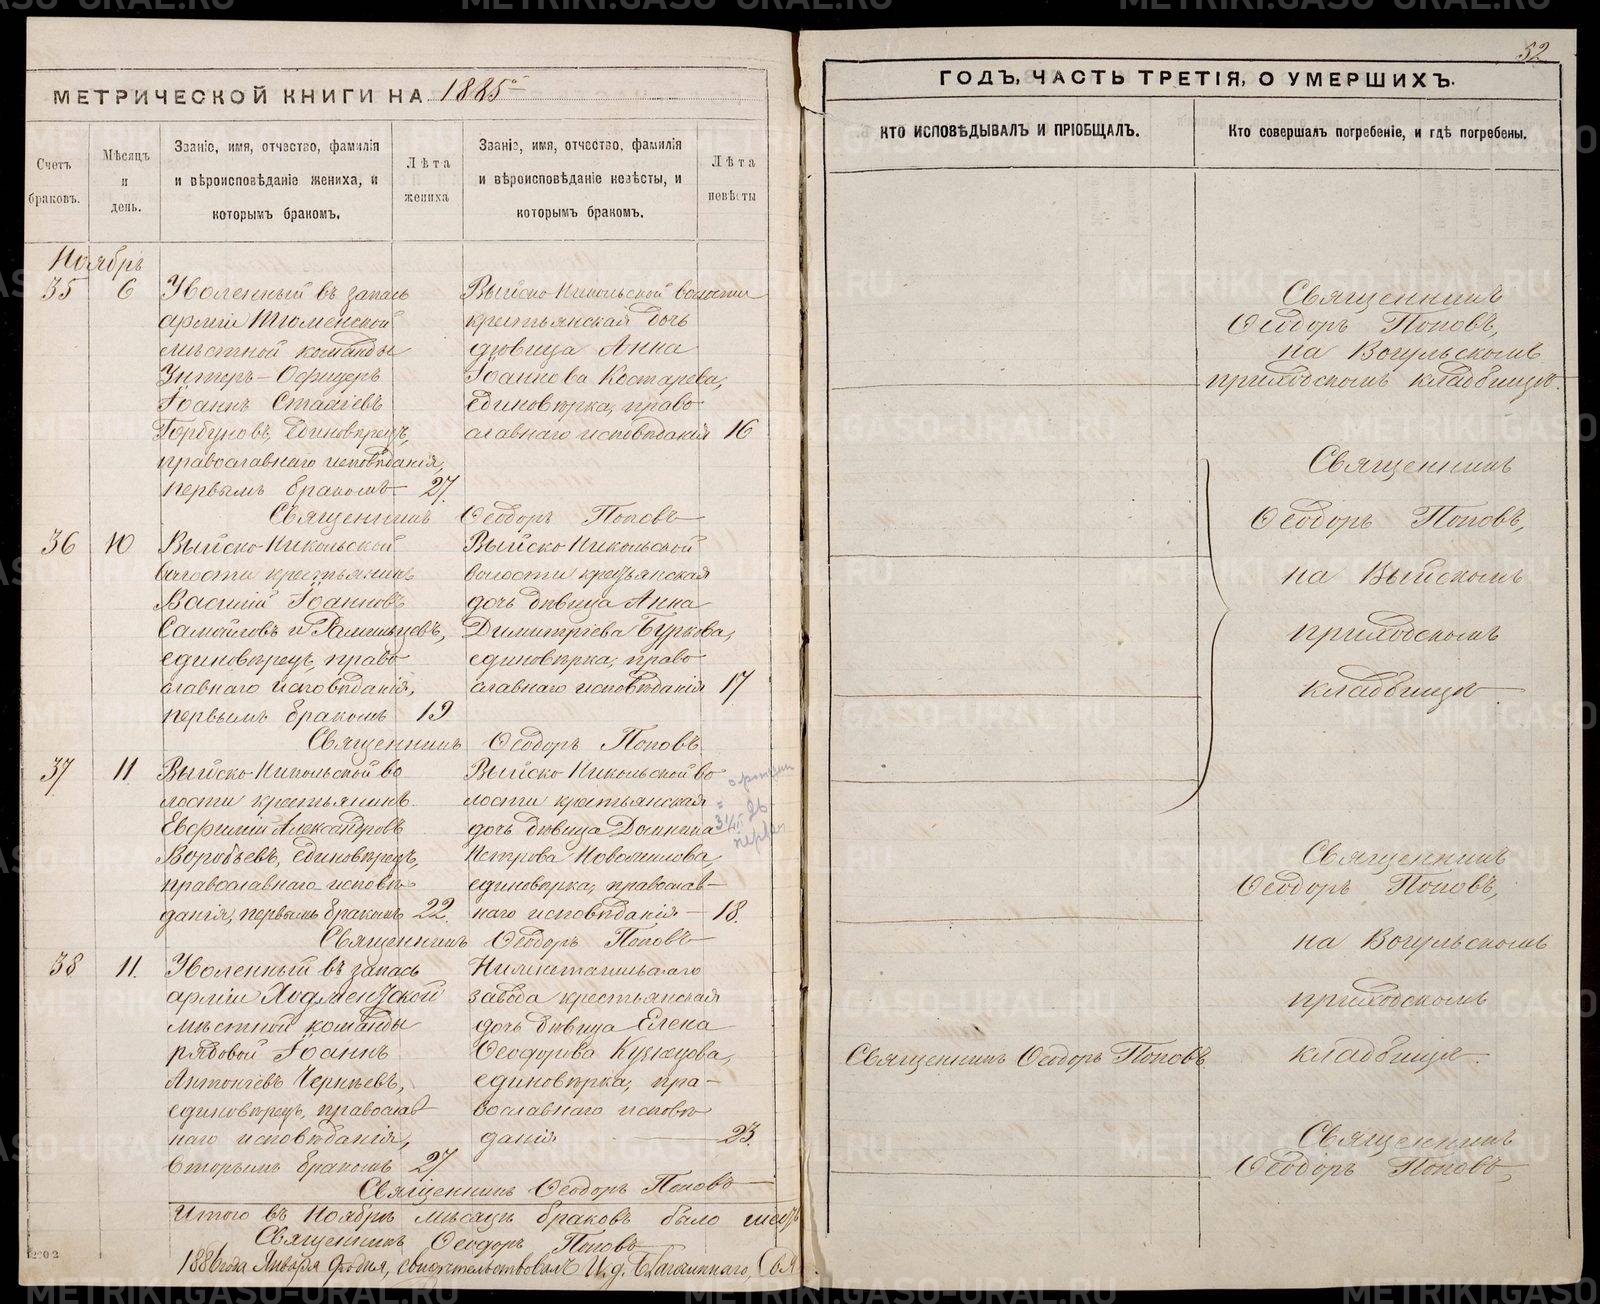 МЕТРИЧЕСКОЙ КНИГИ НА 1885
Счетъ браковъ.
Мѣсяцъ и день.
Званіе, имя, отчество, фамилія и вѣроисповѣданіе жениха, и которымъ бракомъ.
Лѣта жениха
Званіе, имя, отчество, фамилія и вѣроисповѣданіе невѣсты, и которымъ бракомъ.
Лѣта невѣсты
Ноябрь
35 6
Уволенный въ запасъ
арміи Тюменской
мѣстной команды
Унтеръ-Офицеръ
Іоаннъ
Горбуновъ, единовѣрецъ,
православнаго исповѣданія,
первымъ бракомъ 27.
Выйско-Никольской волости
крестьянская дочь
дѣвица Анна
Іоаннова Костарева,
единовѣрка, право
славнаго исповѣданія 16
Священникъ Ѳеодоръ Поповъ
36 10
Выйско-Никольской
волости крестьянинъ
Василій Іоанновъ
Самойловъ и
единовѣрецъ, право
славнаго исповѣданія,
первымъ бракомъ 19
Выйско Никольской
волости крестьянская
дочь дѣвица Анна
Димитріева Буркова,
единовѣрка, право
славнаго исповѣданія 17
Священникъ Ѳеодоръ Поповъ
37 11
Выйско-Никольской во
лости крестьянинъ
Евфимій Александровъ
Воробьевъ, единовѣрецъ,
православнаго исповѣ
данія, первымъ бракомъ 22.
Выйско Никольской во
лости крестьянская
дочь дѣвица Домника
Петрова Новожилова,
единовѣрка, православ-
наго исповѣданія - 18.
Священникъ Ѳеодоръ Поповъ
38 11.
Уволенный въ запасъ
арміи
мѣстной команды
рядовой Іоаннъ
Антоніевъ Чернѣевъ,
единовѣрецъ, православ
наго исповѣданія,
вторымъ бракомъ 27
Нижнетагильскаго
завода крестьянская
дочь дѣвица Елена
Ѳеодорова Кузнецова,
единовѣрка, пра-
вославнаго исповѣ
данія 23.
Священникъ Ѳеодоръ Поповъ
Итого въ Ноябрѣ мѣсяцѣ браковъ было
Священникъ Ѳеодоръ Поповъ
1886 года Января дня, свидѣтельствовалъ И. д. Благочиннаго,
52
ГОДЪ, ЧАСТЬ ТРЕТІЯ, О УМЕРШИХЪ.
КТО ИСПОВѢДЫВАЛЪ И ПРІОБЩАЛЪ.
Кто совершалъ погребеніе, и гдѣ погребены.
Священникъ
Ѳеодоръ Поповъ,
на Вогульскомъ
приходскомъ кладбищѣ.
Священникъ
Ѳеодоръ Поповъ,
на Выйскомъ
приходскомъ
кладбищѣ
Священникъ
Ѳеодоръ Поповъ,
на Вогульскомъ
приходскомъ
Священникъ Ѳеодоръ Поповъ
кладбищѣ.
Священникъ
Ѳеодоръ Поповъ,
METRIKI.GASO-URAL.RU